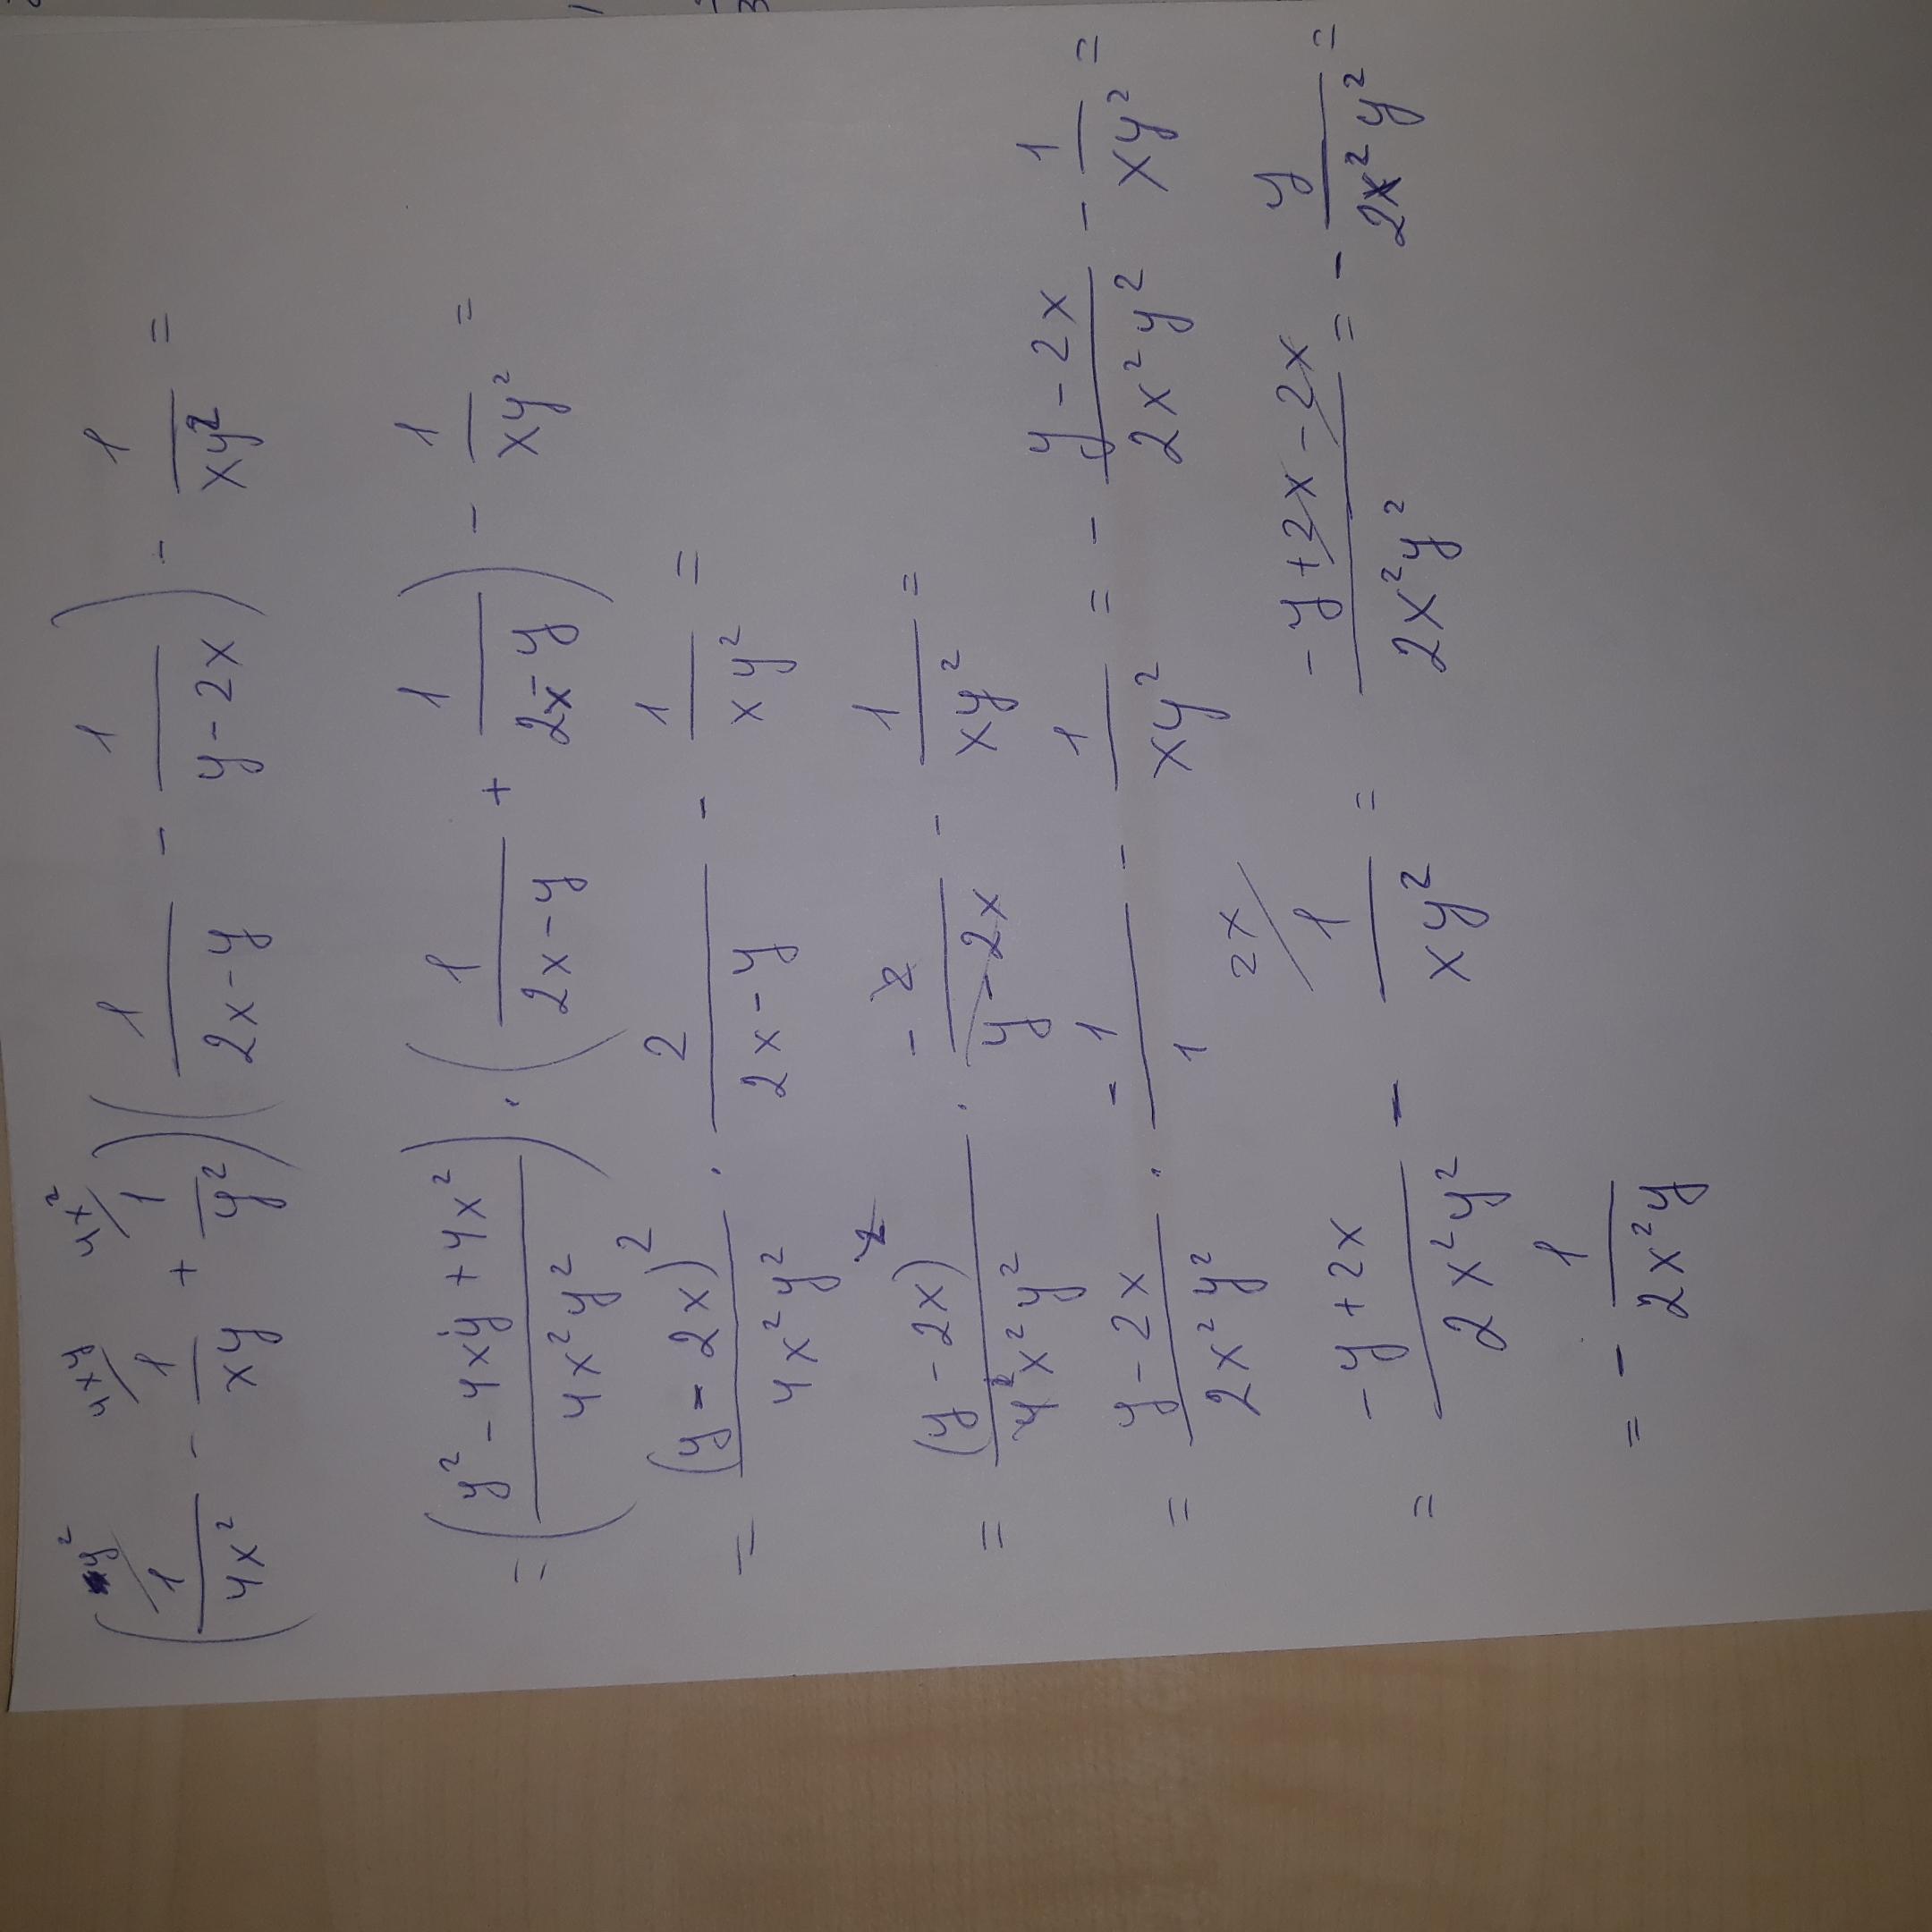 (1/4x² - 1/xy + 1/y²)(1/2x-y - 1/y-2x) - 1/xy² =
= (y² - 4xy + 4x² / 4x²y²) · (1/2x-y + 1/2x-y) - 1/xy² =
= (y - 2x)² / 4x²y² · 2/2x-y - 1/xy² =
= (y - 2x)² / 4x²y² · -2/y-2x - 1/xy² =
= y-2x / 2x²y² · -1/1 - 1/xy² = - y-2x / 2x²y² - 1/xy² =
= -y+2x / 2x²y² - 1/xy² = -y+2x-2x / 2x²y² = - y/2x²y² =
= - 1/2x²y